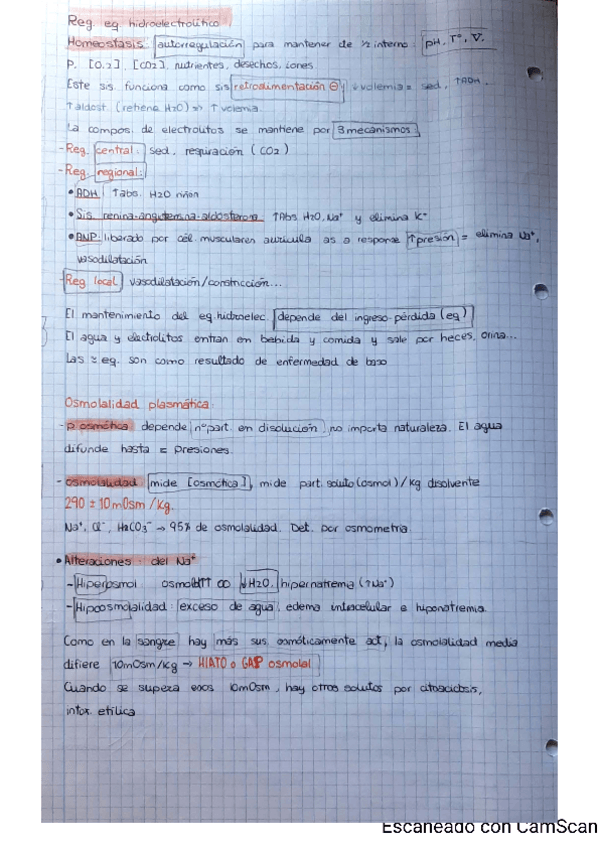 Reg. eq. hidroelectrolítico.
Homeostasis: autorregulación para mantener de ½ interno: pH, Tº, V.
P. [O2], [CO2], nutrientes, desechos, iones.
Este sis. funciona como sis retroalimentación ⊖ y ↓volemia = sed, ↑ADH,
↑aldost. (retiene H2O) => ↑volemia.
La compos. de electrolitos se mantiene por 3 mecanismos:
- Reg. central: sed, respiración (CO2)
- Reg. regional:
• ADH: ↑abs. H2O riñón
• Sis. renina-angiotensina-aldosterona: ↑Abs H2O, Na+ y elimina K+
• ANP: liberado por cél. musculares aurícula as a response ↑presión = elimina Na+,
vasodilatación
Reg local: vasodilatación/constricción...
El mantenimiento del eq.hidroelec. depende del ingreso-pérdida (eq)
El agua y electrolitos entran en bebida y comida y sale por heces, orina...
Las eq. son como resultado de enfermedad de base
Osmolalidad plasmática:
- P osmótica depende nº part. en disolución, no importa naturaleza. El agua
difunde hasta = presiones.
- osmolalidad mide [osmótica], mide part. soluto (osmol) / kg disolvente
290 ± 10 mOsm / Kg.
Na+, Cl-, HCO3- → 95% de osmolalidad. Det. por osmometría.
• Alteraciones del Na+
- Hiperosmol: ↓H2O. hipernatremia (↑Na+)
- Hipoosmolalidad: exceso de agua, edema intracelular e hiponatremia.
Como en la sangre hay más sus. osmóticamente act, la osmolalidad media
difiere 10mOsm/kg → HIATO o GAP osmolal
Cuando se supera esos 10mOsm, hay otros solutos por cetoacidosis,
intox. etílica
Escaneado con CamScan